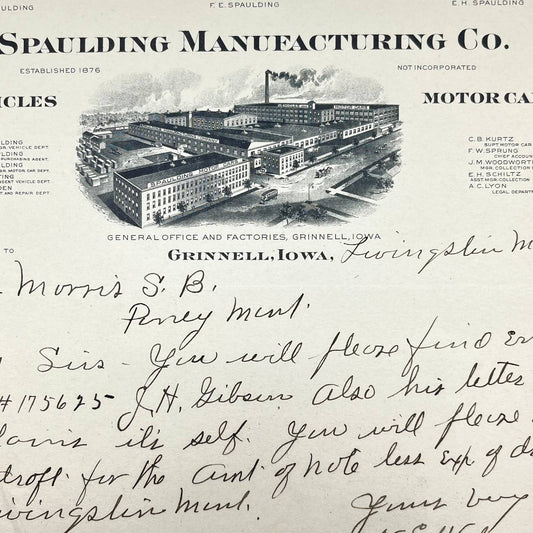 PAULDING
F. E. SPAULDING
E. H. SPAULDING
SPAULDING MANUFACTURING CO.
ESTABLISHED 1876
NOT INCORPORATED
ICLES
MOTOR CA
LDING
GR. VEHICLE DEPT.
LDING
PURCHASING AGENT.
LDING
GR. MOTOR CAR DEPT.
TING
AGENT VEHICLE DEPT.
DEN
NT AND REPAIR DEPT.
C. B. KURTZ
SUPT MOTOR CAR
F. W. SPRUNG
CHIEF ACCOUN
J. M. WOODWORT
MGR. COLLECTION
E. H. SCHILTZ
ASST. MGR. COLLECTION
A. C. LYON
LEGAL DEPART
SPAULDING MOTOR CARS
GENERAL OFFICE AND FACTORIES, GRINNELL, IOWA
TO
GRINNELL, IOWA, Livingstin M
Morris S. B.
Mont.
Sirs - You will please find En
#175625 J. H. Gibson Also his letter
it's self. You will please
for the Amt of note less Exp of d
ivingstin Mont.
Yours very